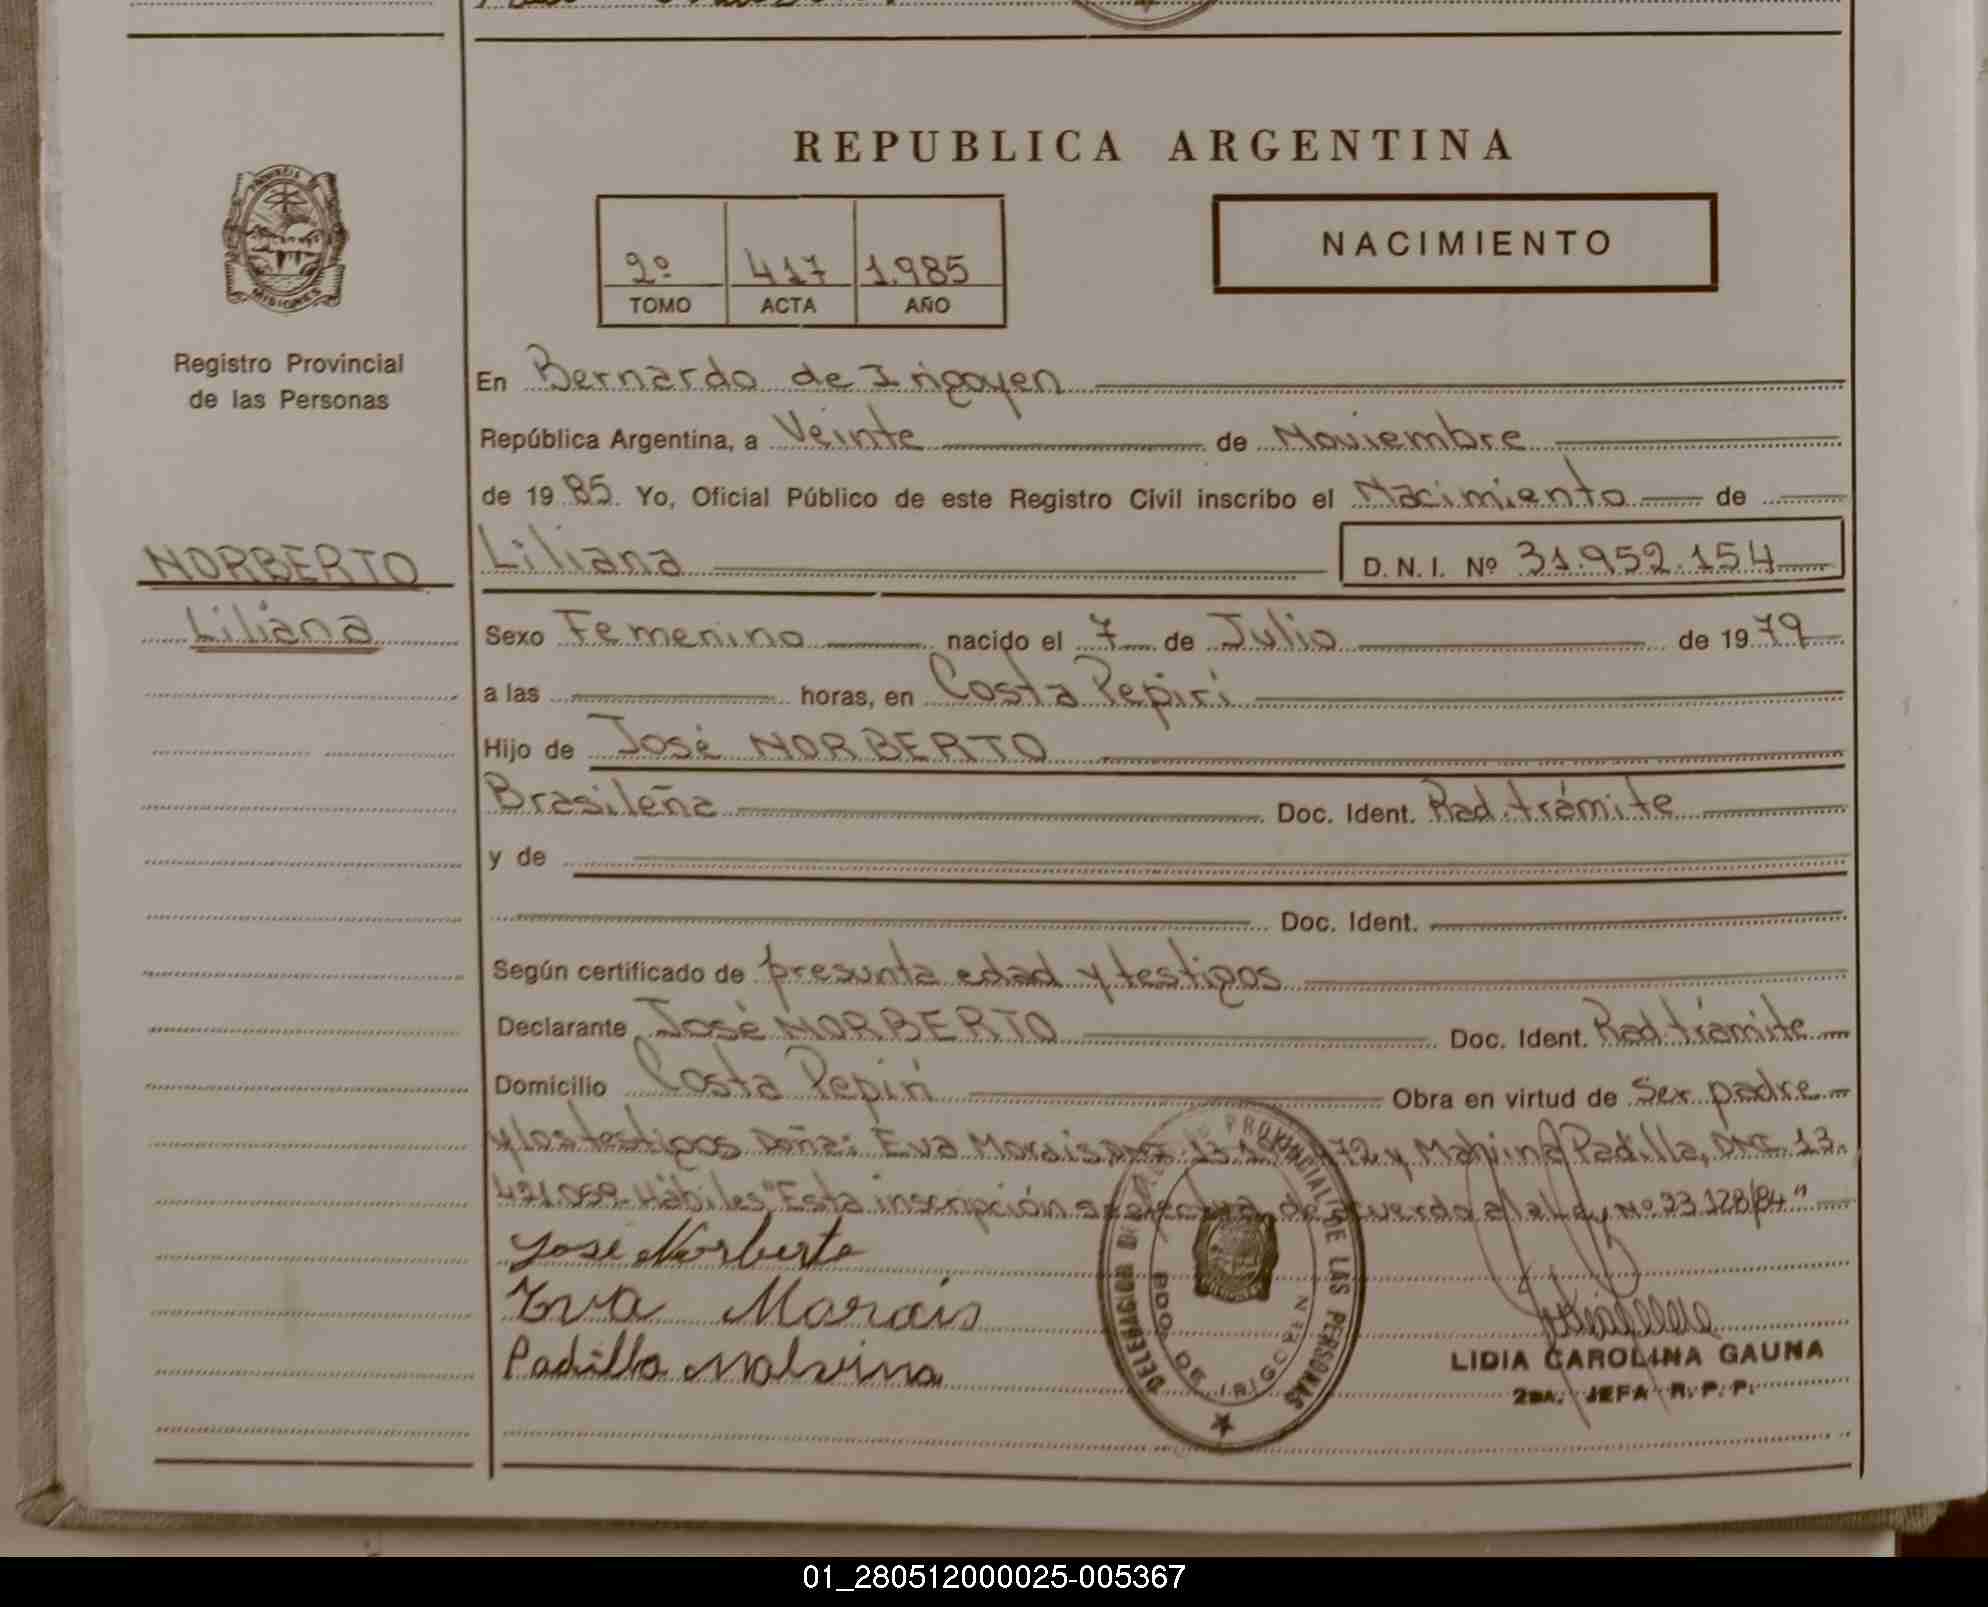 REPUBLICA ARGENTINA
2º 417 1.985
TOMO ACTA AÑO
NACIMIENTO
PROVINCIA
MISIONES
Registro Provincial
de las Personas
NORBERTO
Liliana
En Bernardo de Irigoyen
República Argentina, a Veinte de Noviembre
de 19 85. Yo, Oficial Público de este Registro Civil inscribo el Nacimiento de
Liliana D.N.I. Nº 31.952.154
Sexo Femenino nacido el 7 de Julio de 19 79
a las horas, en Costa Pepirí
Hijo de José NORBERTO
Brasileña Doc. Ident. Rad. trámite
y de
Doc. Ident.
Según certificado de presunta edad y testigos
Declarante José NORBERTO Doc. Ident. Rad trámite
Domicilio Costa Pepirí Obra en virtud de Ser padre
y los testigos Doña: Eva Morais DNI. 72 y Malvina Padilla, DNI. 13.
Hábiles "Esta inscripción se efectua de acuerdo a la Ley Nº 23.128/84"
José Norberto
Eva Morais
Padilla Malvina
DELEGACION PROVINCIAL DE LAS PERSONAS
BDO. DE IRIGOYEN
LIDIA CAROLINA GAUNA
2DA. JEFA R. P. P.
01_280512000025-005367